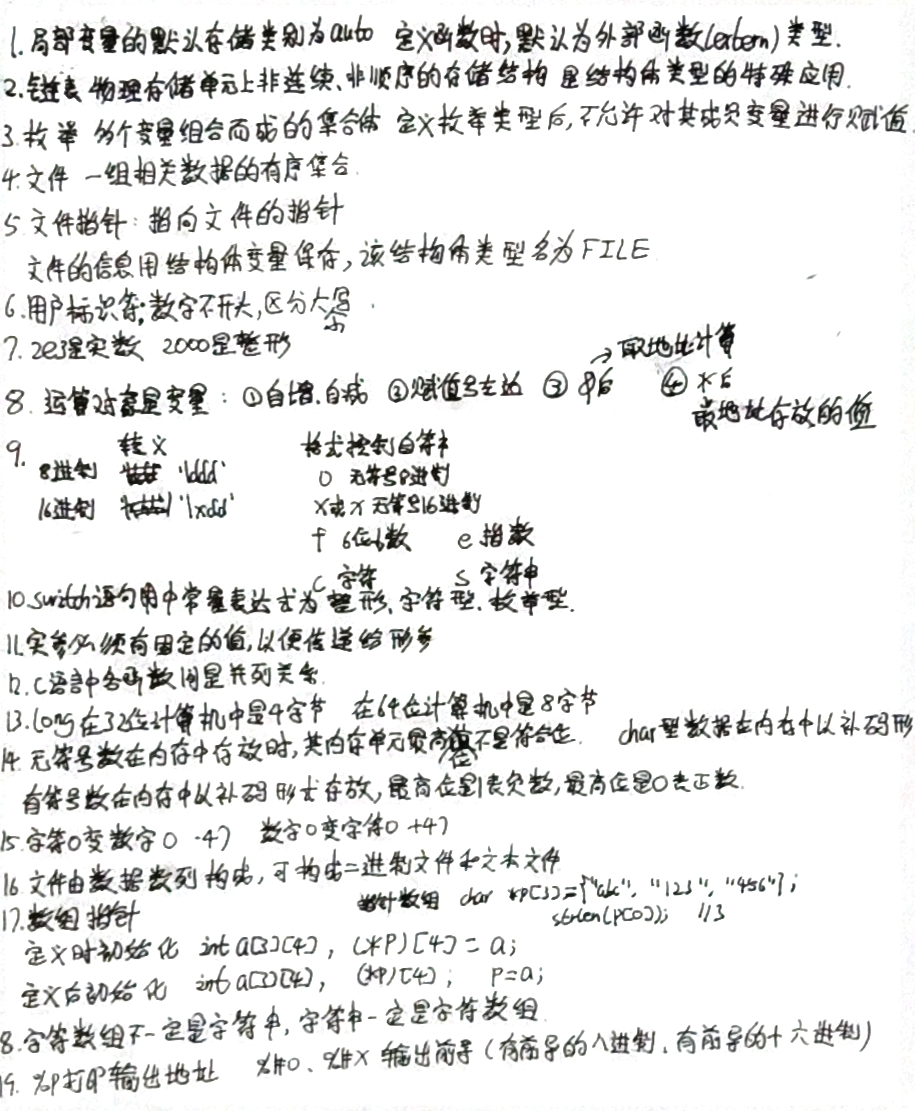 1.局部变量的默认存储类别为auto 定义函数时,默认为外部函数(extern)类型.
2.链表 物理存储单元上非连续、非顺序的存储结构 是结构体类型的特殊应用.
3.枚举 多个变量组合而成的集合体 定义枚举类型后,不允许对其成员变量进行赋值.
4.文件 一组相关数据的有序集合.
5.文件指针:指向文件的指针
文件的信息用结构体变量保存,该结构体类型名为FILE
6.用户标识符:数字不开头,区分大写
小
7.2e3是实数 2000是整形
→取地址计算
8.运算对象是变量:①自增.自减 ②赋值号左边 ③&后 ④*后
最地址存放的值
9. 转义 格式控制字符
8进制 '\ddd' o 无符号8进制
16进制 '\xdd' X或x 无符号16进制
f 6位小数 e 指数
c 字符 s 字符串
10.switch语句用中常量表达式为整形、字符型、枚举型.
11.实参必须有固定的值,以便传递给形参
12.C语言中各函数间是并列关系.
13.long在32位计算机中是4字节 在64位计算机中是8字节
14.无符号数在内存中存放时,其内存单元最高位不是符合位. char型数据在内存中以补码形
有符号数在内存中以补码形式存放,最高位是1表负数,最高位是0表正数.
15.字符0变数字0 -47 数字0变字符0 +47
16.文件由数据数列构成,可构成二进制文件和文本文件
指针数组 char *p[3]={"abc", "123", "456"};
strlen(p[0]); //3
17.数组指针
定义时初始化 int a[3][4], (*P)[4] = a;
定义后初始化 int a[3][4], (*p)[4]; p=a;
8.字符数组不一定是字符串,字符串一定是字符数组.
19. %p打印输出地址 %#o、%#x 输出前导(有前导的八进制、有前导的十六进制)